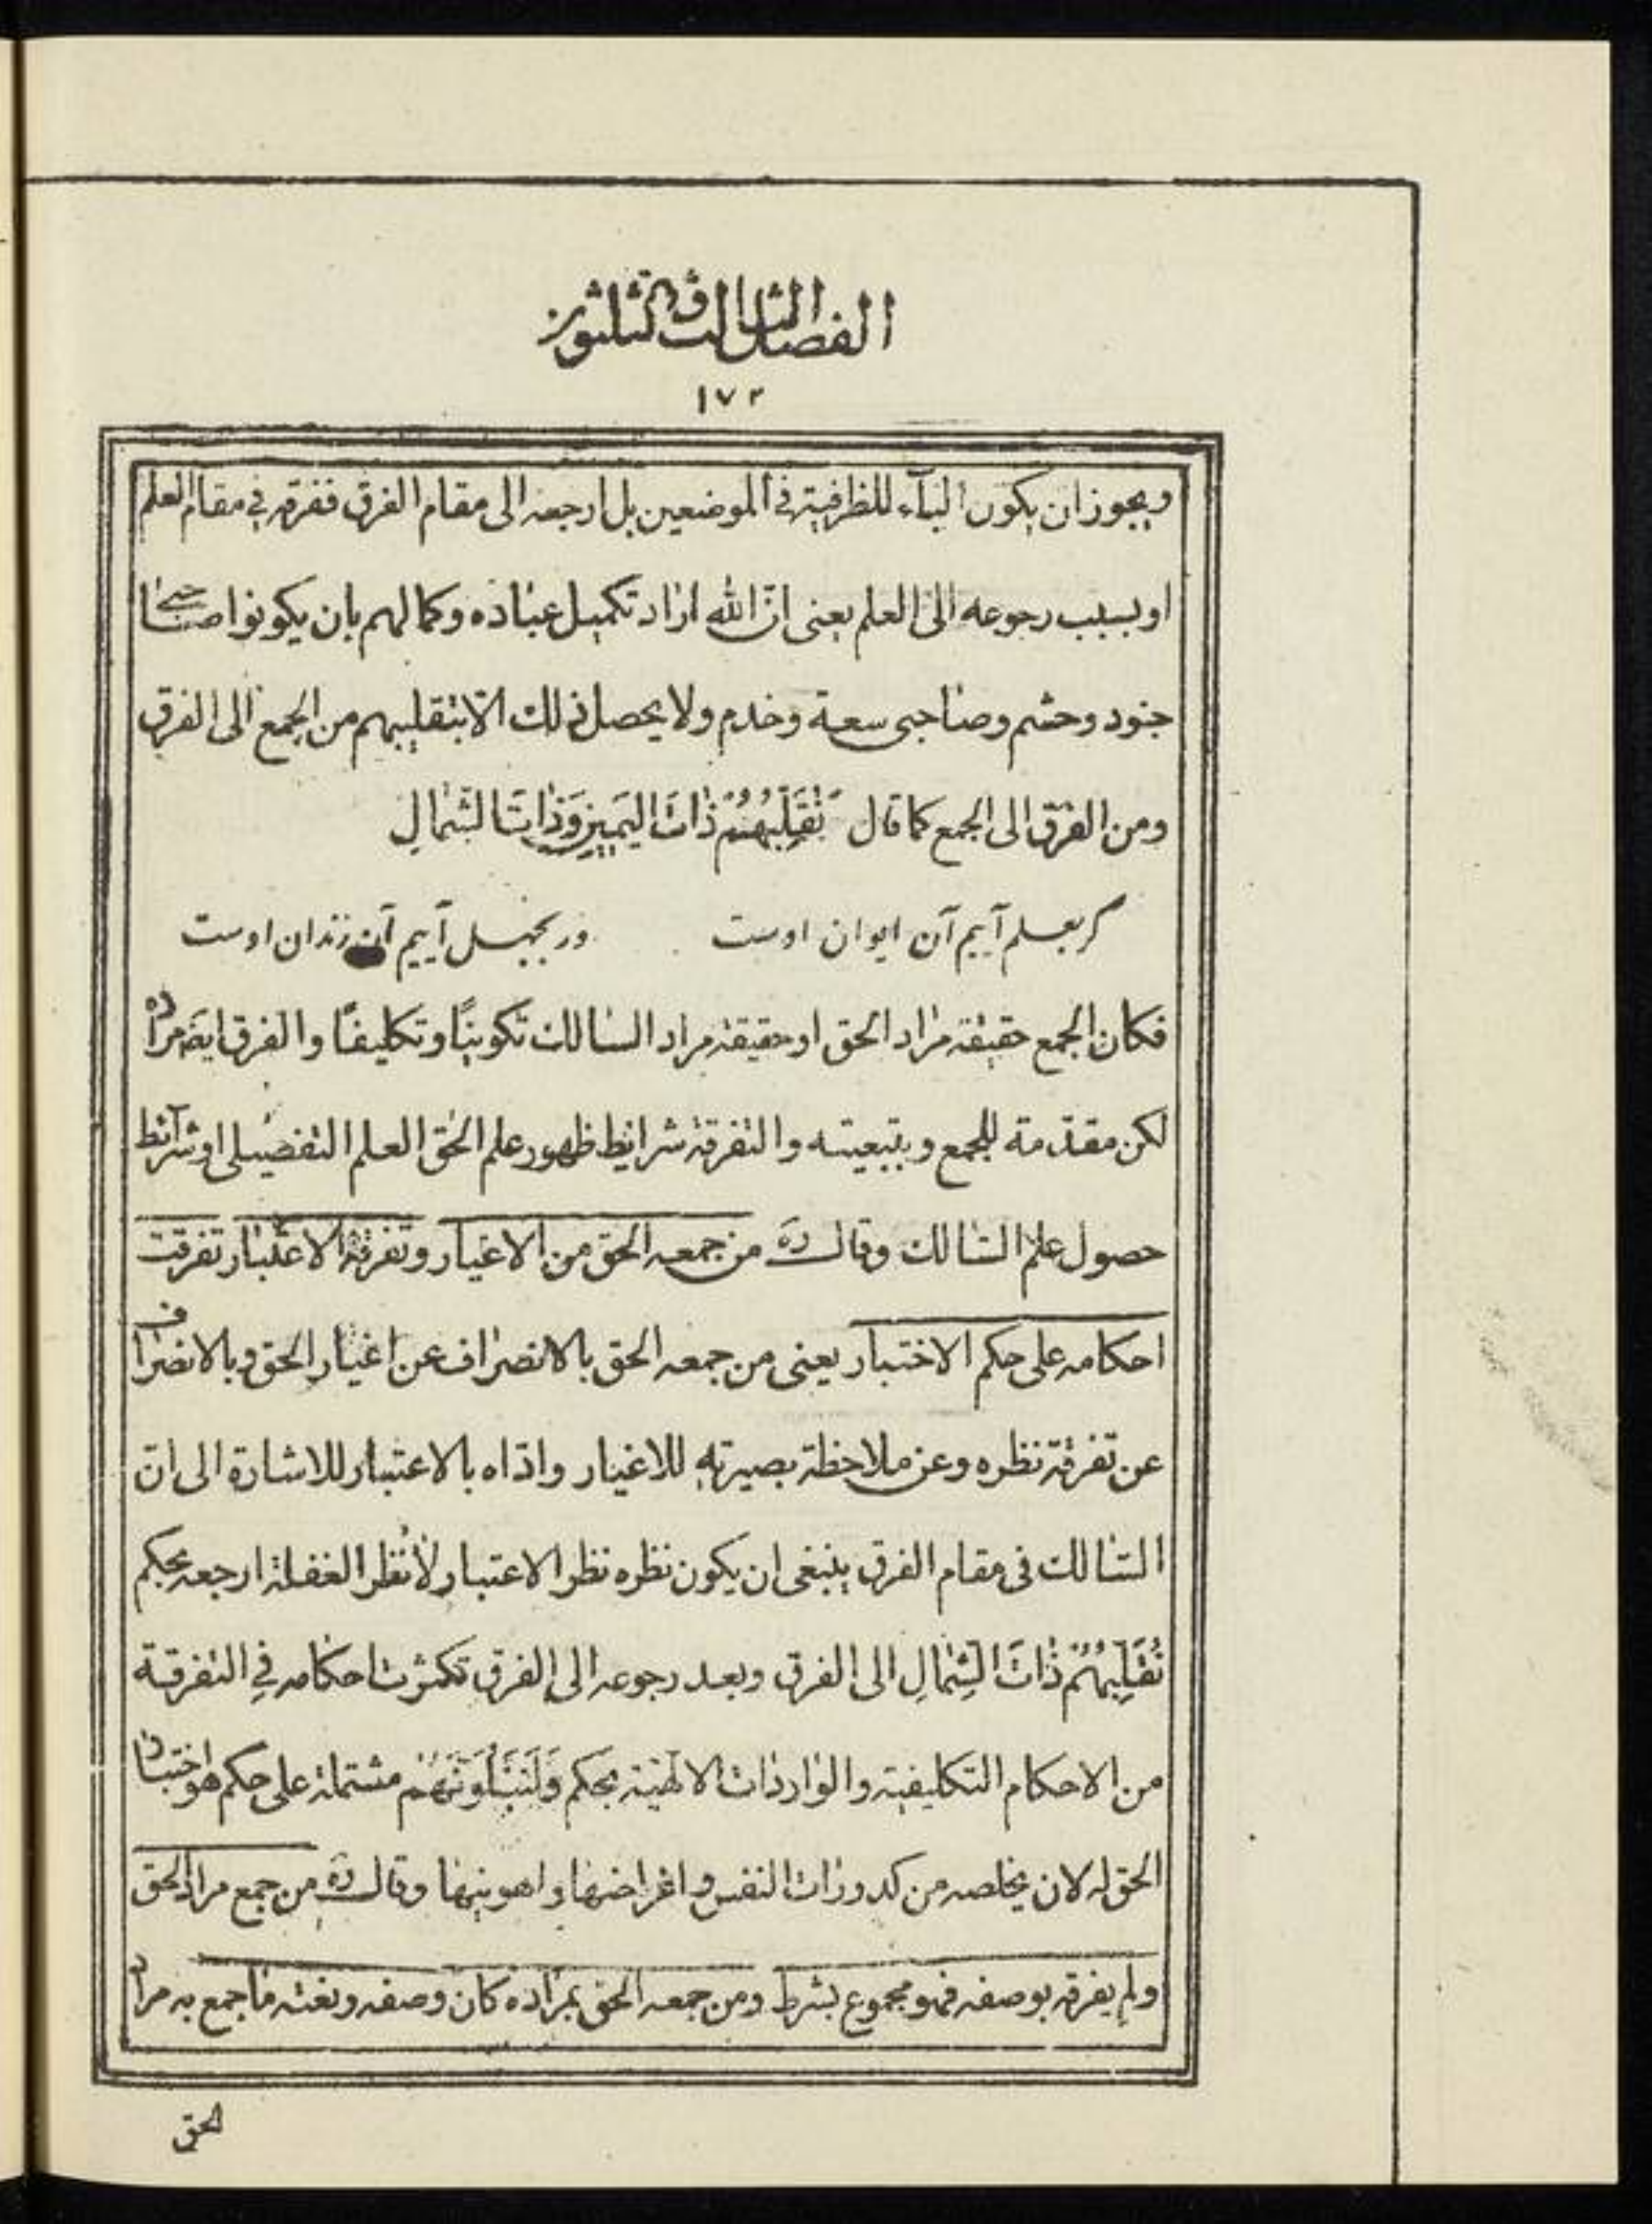 الفصل الثالث والثلثون
١٧٢
ويجوز ان يكون البآء للظرفية في الموضعين بل ارجعه الى مقام الفرق ففرقه في مقام العلم
او بسبب رجوعه الى العلم يعنى انّ الله اراد تكميل عباده وكمالهم بان يكونوا صاحبى
جنود وحشم وصاحبى سعة وخدم ولا يحصل ذلك الّا بتقليبهم من الجمع الى الفرق
ومن الفرق الى الجمع كما قال نُقَلِّبُهُمْ ذَاتَ الْيَمِينِ وَذَاتَ الشِّمَالِ
گر بعلم آييم آن ايوان اوست ور بجهل آييم آن زندان اوست
فكان الجمع حقيقة مراد الحق او حقيقة مراد السالك تكوينًا وتكليفًا والفرق ايضَ مراده
لكن مقدّمة للجمع وبتبعيته والتفرقة شرايط ظهور علم الحق العلم التفصيلى او شرآئط
حصول علم السالك وقال ره من جمعه الحق من الاغيار وتفرقة الاعتبار تفرقت
احكامه على حكم الاختبار يعنى من جمعه الحق بالانصراف عن اغيار الحق وبالانصراف
عن تفرقة نظره وعن ملاحظة بصيرته للاغيار واداه بالاعتبار للاشارة الى ان
السالك فى مقام الفرق ينبغى ان يكون نظره نظر الاعتبار لا نظر الغفلة ارجعه بحكم
نُقَلِّبُهُمْ ذَاتَ الشِّمَالِ الى الفرق وبعد رجوعه الى الفرق تكثرت احكامه في التفرقة
من الاحكام التكليفية والواردات الالهية بحكم وَلَنَبْلُوَنَّهُمْ مشتملة على حكم هو اختبار
الحق له لان يخلصه من كدورات النفس واغراضها واهويتها وقال ره من جمع مراد الحق
ولم يفرقه بوصفه فهو مجموع بشرط ومن جمعه الحق بمراده كان وصفه ونعته ما جمع به مراد
الحق